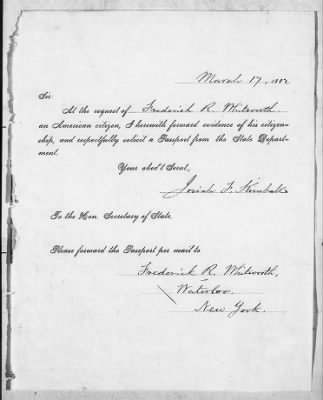 March 17, 1882
Sir
At the request of Frederick R. Whitworth
an American citizen, I herewith forward evidence of his citizen-
ship, and respectfully solicit a Passport from the State Depart-
ment.
Your obed't Servt,
Josiah F. Kimball
To the Hon. Secretary of State.
Please forward the Passport per mail to
Frederick R. Whitworth,
Waterloo,
New York.